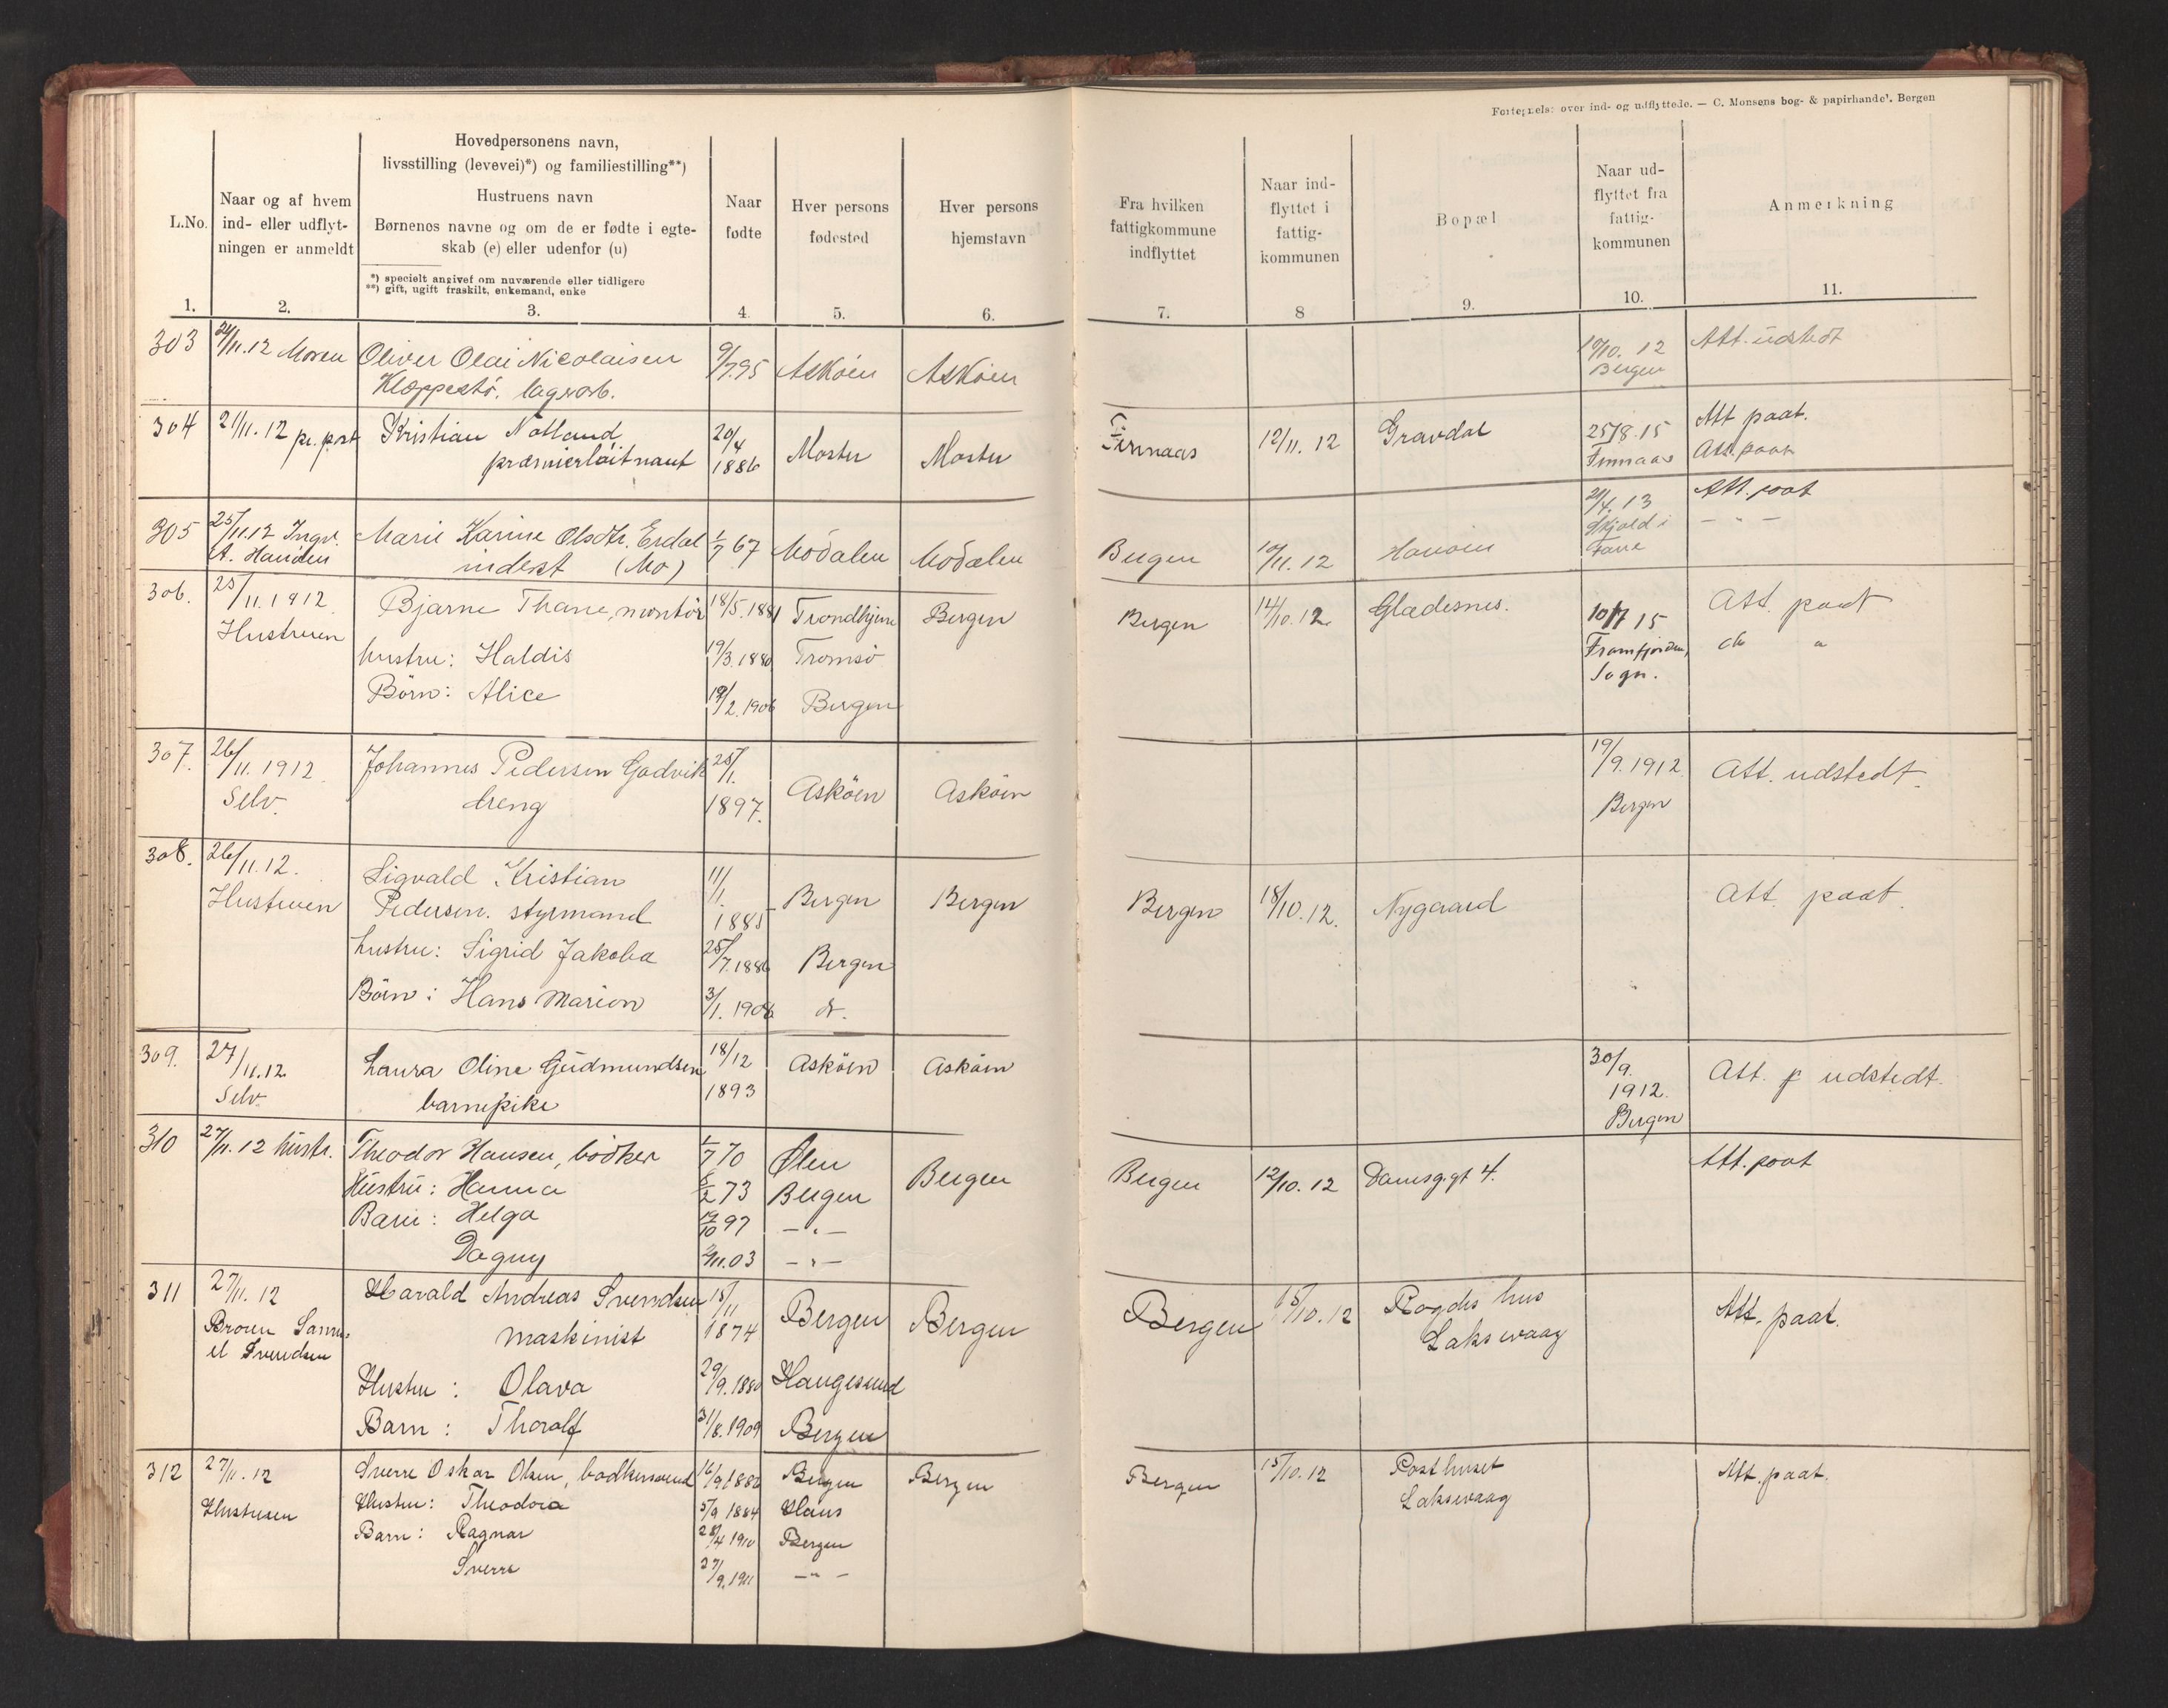 Fortegnelse over ind- og udflyttede. — C. Monsens bog- & papirhandel. Bergen
L.No.
1.
Naar og af hvem
ind- eller udflyt-
ningen er anmeldt
2.
Hovedpersonens navn,
livsstilling (levevei)*) og familiestilling**)
Hustruens navn
Børnenes navne og om de er fødte i egte-
skab (e) eller udenfor (u)
*) specielt angivet om nuværende eller tidligere
**) gift, ugift fraskilt, enkemand, enke
3.
Naar
fødte
4.
Hver persons
fødested
5.
Hver persons
hjemstavn
6.
Fra hvilken
fattigkommune
indflyttet
7.
Naar ind-
flyttet i
fattig-
kommunen
8
Bopæl
9.
Naar ud-
flyttet fra
fattig-
kommunen
10.
Anmerkning
11.
303
/11.12 Moren
Oliver Olai Nicolaisen
Kleppestö. lagerarb.
9/7.95
Asköen
Asköen
/10. 12
Bergen
Att. udstedt
304
21/11.12 pr. post
Kristian Notland
præmierløitnant
20/4
1886
Moster
Moster
Finnaas
12/11. 12
Gravdal
25/8.15
Finnaas
Att paat.
Att. paat
305
25/11.12 Ingv.
A. Hauden
Marie Karine Olsdtr. Erdal
inderst (Mo)
1/7 67
Modalen
Modalen
Bergen
/11. 12
/4. 13
Skjold i
Fane
Att. paat
— " —
306.
25/11.1912.
Hustruen
Bjarne Thane, montör
18/5.1881
Trondhjem
Bergen
Bergen
14/10.12.
Gladesnes.
10/7 15
Framfjorden,
Sogn.
Att. paat
do "
hustru: Haldis
19/3.1880
Tromsö
Börn: Alice
19/2.1906
Bergen
307.
26/11.1912
Selv.
Johannes Pedersen Godvik
dreng
25/1.
1897.
Asköen
Asköen
19/9.1912
Bergen
Att. udstedt.
308.
26/11.12.
Hustruen
Sigvald Kristian
Pedersen. styrmand
11/1.
1885
Bergen
Bergen
Bergen
18/10.12.
Nygaard
Att. paat.
hustru: Sigrid Jakoba
25/7.1886
Bergen
Börn: Hans Marion
3/1.1906
do.
309.
27/11.12
Selv.
Laura Oline Gudmundsen
barnepike
18/12
1893
Asköen
Asköen
30/9.
1912.
Bergen
Att. udstedt.
310
27/11.12 hustr.
Theodor Hansen, bödker
1/7 70
Ølen
Bergen
Bergen
12/10.12
Damsg.gt 4.
Att. paat
Hustru: Hanna
5/2 73
Bergen
Barn: Helga
/10 97
— " —
Dagny
2/11.03
— " —
311
27/11. 12
Broren Samu-
el Svendsen
Harald Andreas Svendsen
maskinist
15/11
1874
Bergen
Bergen
Bergen
15/10.12
hus
Laksevaag
Att. paat.
Hustru: Olava
29/9.1880
Haugesund
Barn: Thoralf
31/8.1909
Bergen
312
27/11. 12
Hustruen
Sverre Oskar Olsen, bødkersvend
16/9 1882
Bergen
Bergen
Bergen
15/10.12
Posthuset
Laksevaag
Att. paat.
Hustru: Theodora
5/9 1884
Haus
Barn: Ragnar
28/4 1910
Bergen
Sverre
27/9.1911
— " —